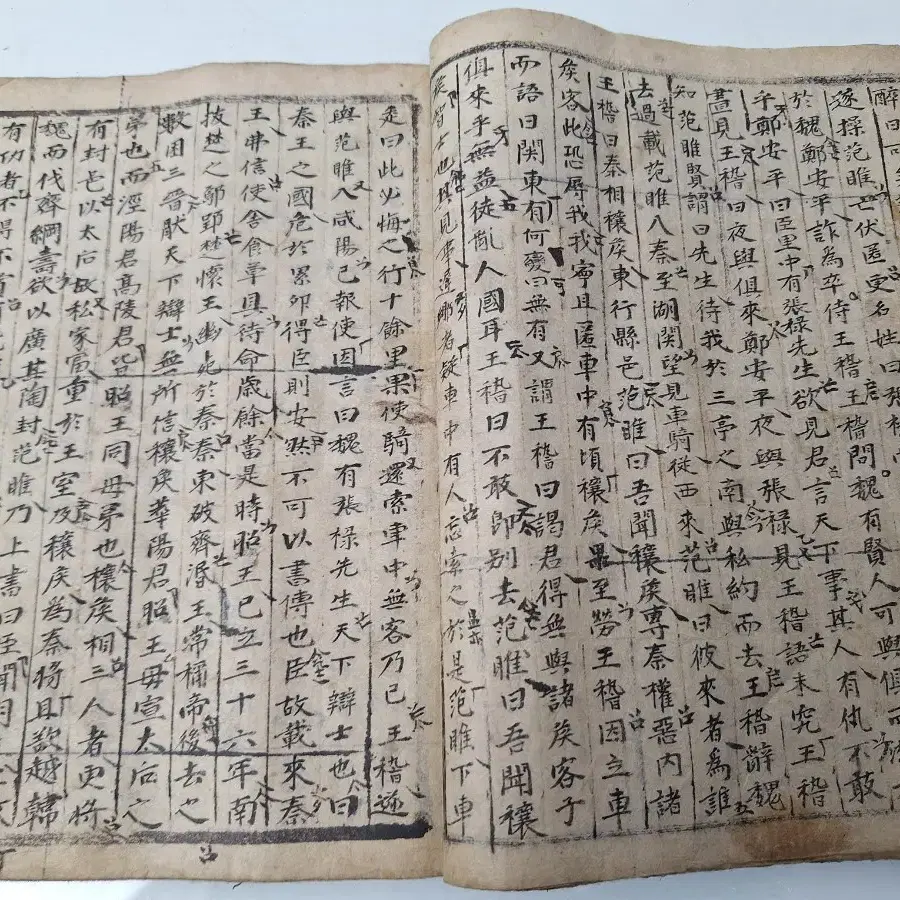 醉曰可
遂操范睢亡伏匿更名姓曰張祿
於魏鄭安平詐為卒侍王稽王稽問魏有賢人可與俱西
乎鄭安平曰臣里中有張祿先生欲見君言天下事其人有仇不敢
晝見王稽曰夜與俱來鄭安平夜與張祿見王稽語未究王稽
知范睢賢謂曰先生待我於三亭之南與私約而去王稽辭魏
去過載范睢入秦至湖関望見車騎從西來范睢曰彼來者為誰
王稽曰秦相穰侯東行縣邑范睢曰吾聞穰侯專秦權惡內諸
侯客此恐辱我我寧且匿車中有頃穰侯果至勞王稽因立車
而語曰関東有何變曰無有又謂王稽曰謁君得無與諸侯客子
俱來乎無益徒亂人國耳王稽曰不敢即別去范睢曰吾聞穰
侯智士也其見事遲鄉者疑車中有人忘索之於是范睢下車
走曰此必悔之行十餘里果使騎還索車中無客乃已王稽遂
與范睢入咸陽已報使因言曰魏有張祿先生天下辯士也曰
秦王之國危於累卵得臣則安然不可以書傳也臣故載來秦
王弗信使舍食草具待命歲餘當是時昭王已立三十六年南
拔楚之鄢郢楚懷王幽死於秦秦東破齊湣王常稱帝後去之
數困三晉厭天下辯士無所信穰侯華陽君昭王母宣太后之
弟也而涇陽君高陵君皆昭王同母弟也穰侯相三人者更將
有封邑以太后故私家富重於王室及穰侯為秦將且欲越韓
魏而伐齊綱壽欲以廣其陶封范睢乃上書曰臣聞明
有功者不得不賞有